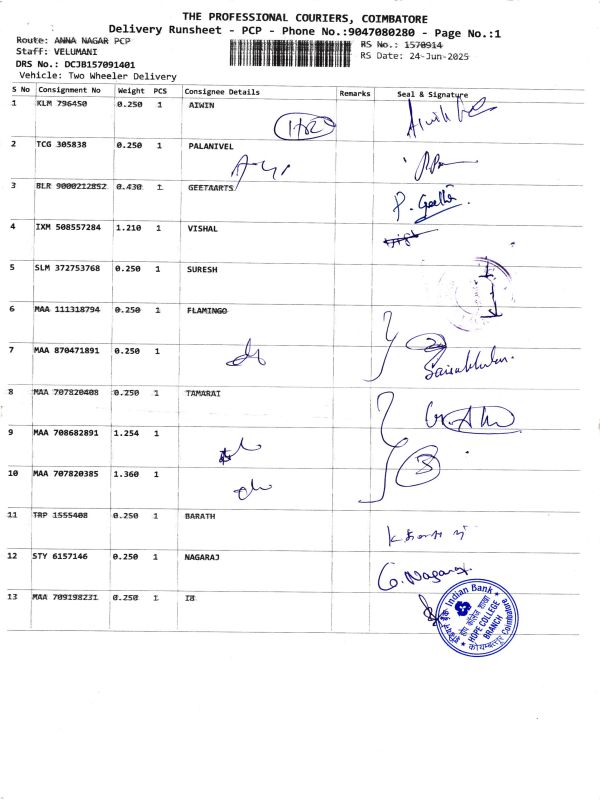 THE PROFESSIONAL COURIERS, COIMBATORE
Delivery Runsheet - PCP - Phone No.:9047080280 - Page No.:1
Route: ANNA NAGAR PCP
RS No.: 1570914
Staff: VELUMANI
RS Date: 24-Jun-2025
DRS No.: DCJB157091401
Vehicle: Two Wheeler Delivery
S No Consignment No Weight PCS Consignee Details Remarks Seal & Signature
1 KLM 796450 0.250 1 AIWIN
2 TCG 305838 0.250 1 PALANIVEL
3 BLR 9000212852 0.430 1 GEETAARTS P. Geetha
4 IXM 508557284 1.210 1 VISHAL
5 SLM 372753768 0.250 1 SURESH
6 MAA 111318794 0.250 1 FLAMINGO
7 MAA 870471891 0.250 1
8 MAA 707820408 0.250 1 TAMARAI
9 MAA 708682891 1.254 1
10 MAA 707820385 1.360 1 3
11 TRP 1555408 0.250 1 BARATH
12 STY 6157146 0.250 1 NAGARAJ G. Nagaraj
13 MAA 709198231 0.250 1 IB
Indian Bank
होप कॉलेज शाखा
HOPE COLLEGE
BRANCH
Coimbatore